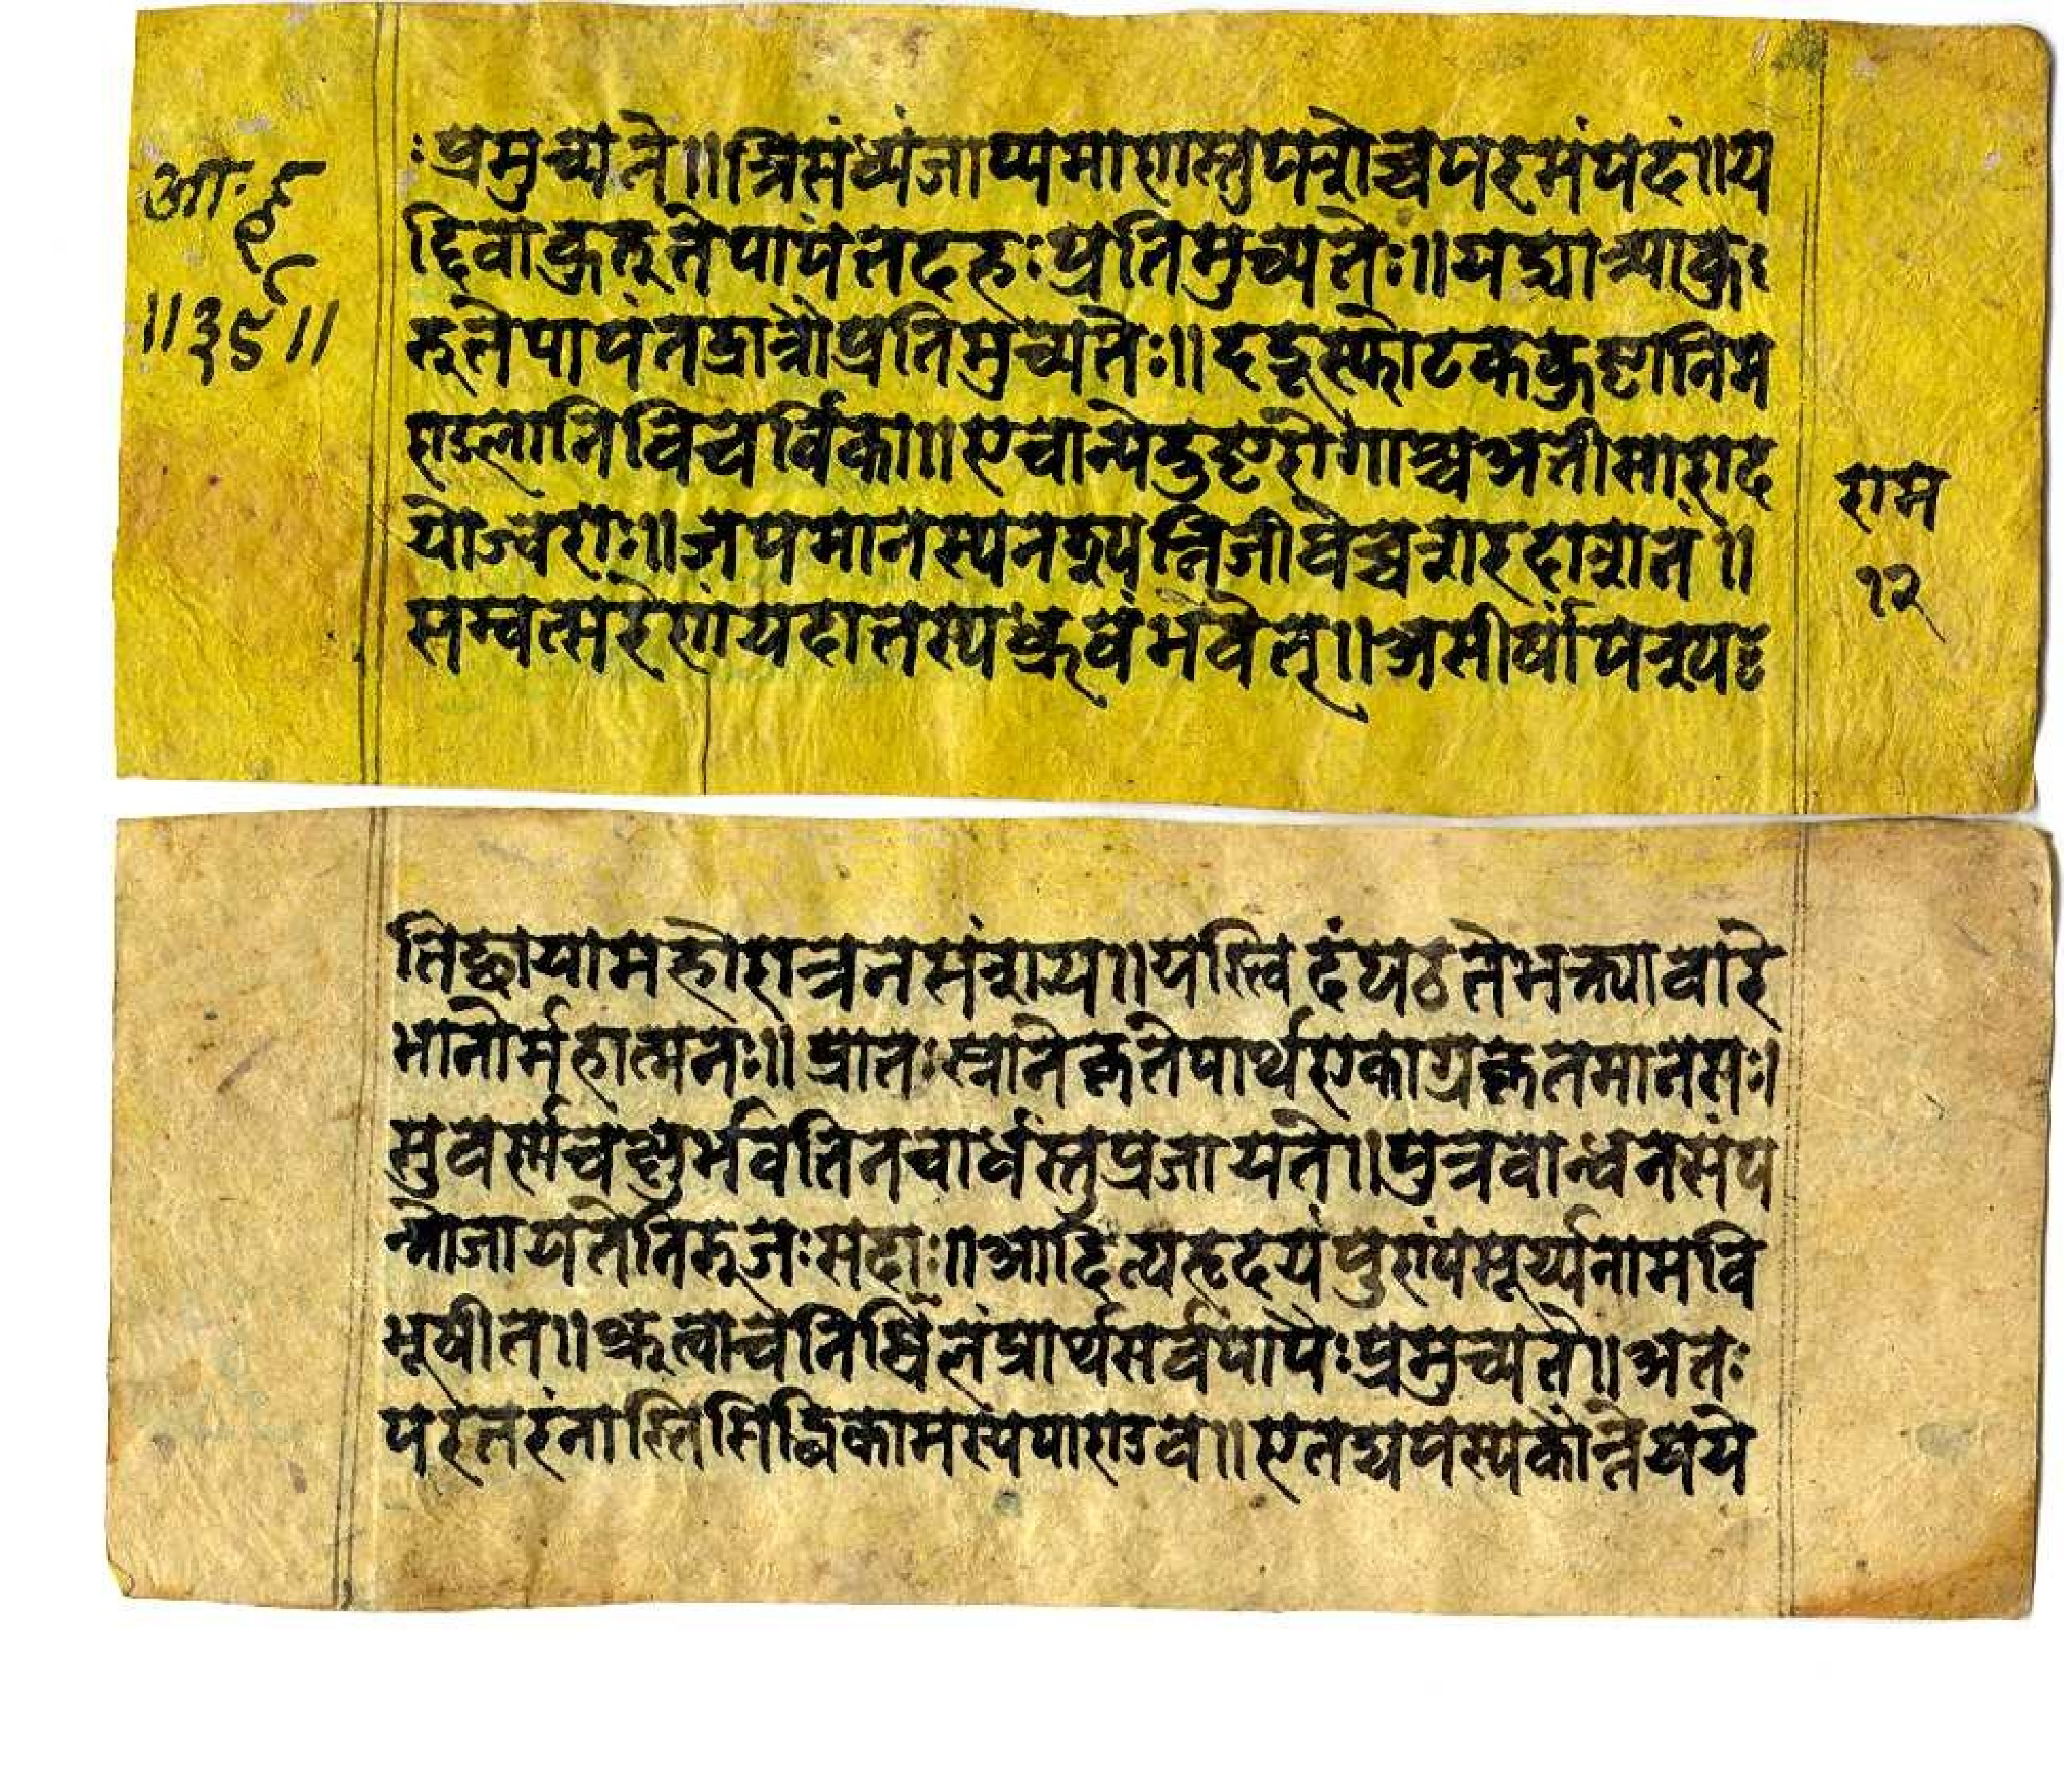 आ॰ हृ
॥३९॥
ः प्रमुच्यते॥ त्रिसंध्यं जाप्यमाणस्तु पश्येच्च परमं पदं॥ य
द्दिवा कुरुते पापं तदह्नः प्रतिमुच्यतेः॥ यद्रात्र्या कु
रुते पापं तद्रात्रौ प्रतिमुच्यतेः॥ दद्रूस्फोटककुष्टानि म
ण्डलानि विचर्विका॥ ए चान्ये दुष्टरोगाश्च अतीसाराद
योज्वराः॥ जपमानस्य नश्यन्ति जीवेच्च शरदाशतं॥
सम्वत्सरेणां यदा तस्य ध्रुवं भवेत्॥ अशीर्षां पश्य
राम
१२
ति छायामहोरात्र न संशय॥ यस्त्विदं पठते भक्त्या वारे
भानोर्महात्मनः॥ प्रातः स्नाने कृते पार्थ एकाग्रकृतमानसः।
सुवर्णचक्षुर्भवति न चार्धस्तु प्रजायते॥ पुत्रवान्धनसंप
न्नो जायते निरुजः सदाः॥ आदित्यहृदयं पुण्यं सूर्य्यनामवि
भूषीत॥ श्रुत्वा च निखिलं प्रार्थ सर्वपापैः प्रमुच्यते॥ अतः
परतरं नास्ति सिद्धिकामस्य पाण्डव॥ एतद्यपस्य कौन्तेय ये